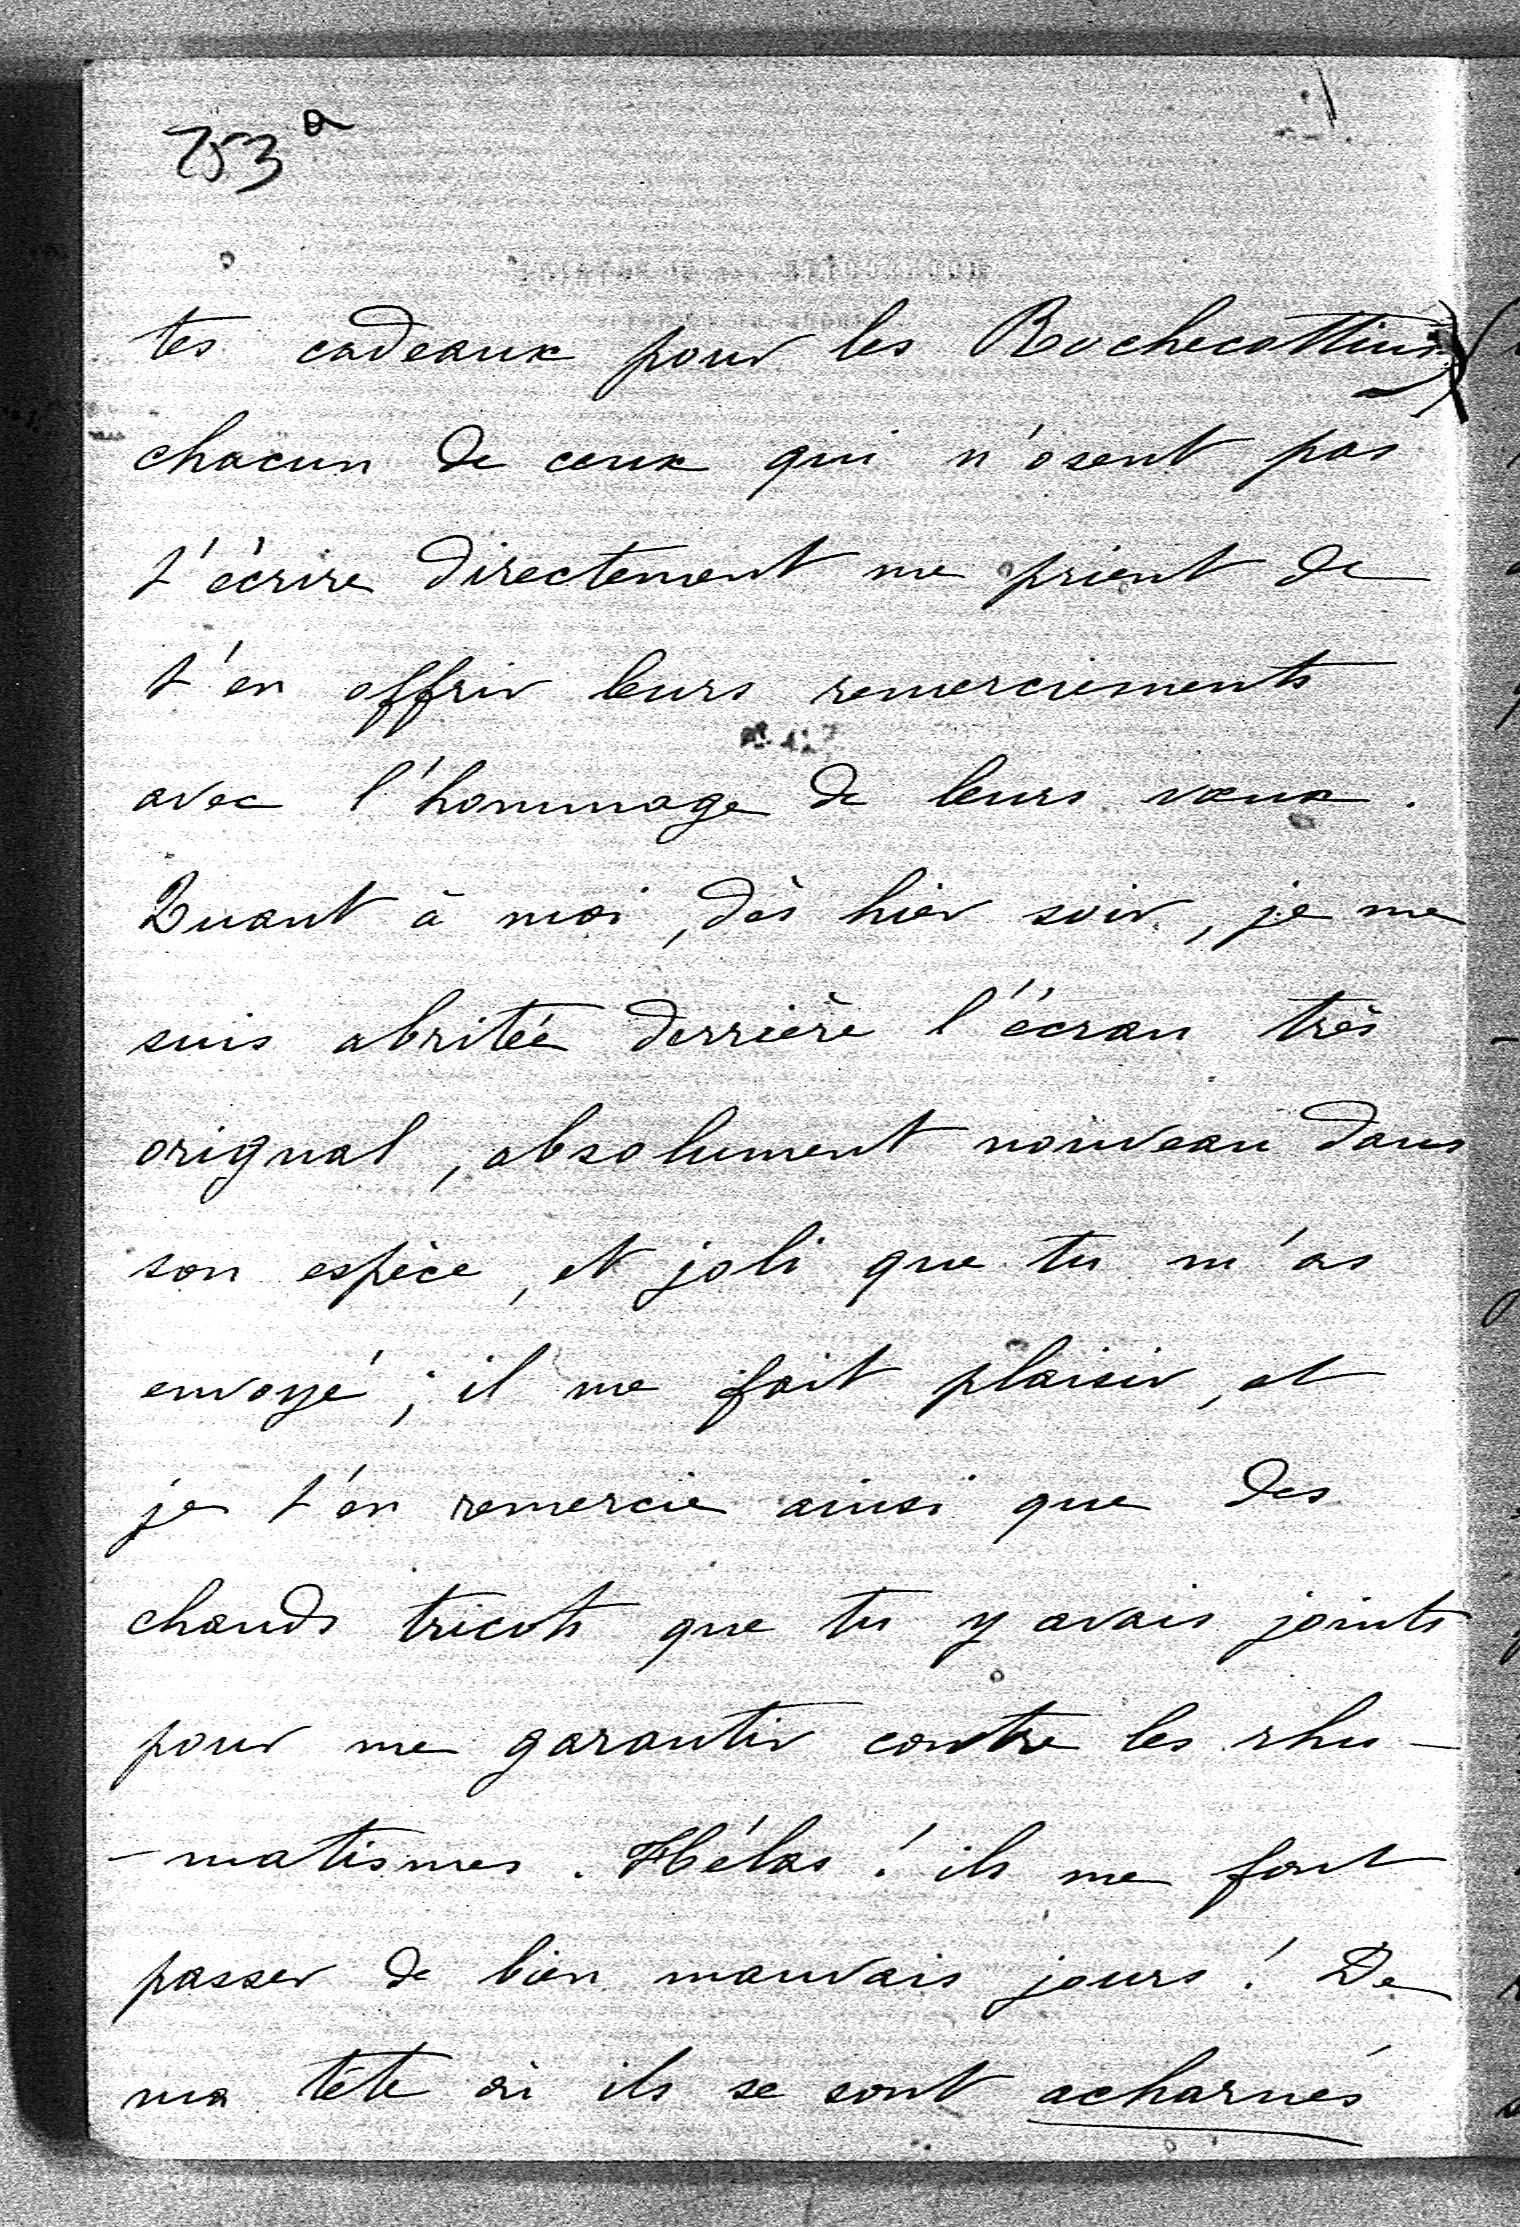 753 a
tes cadeaux pour les Rochecottins
chacun de ceux qui n'osent pas
t'écrire directement me prient de
t'en offrir leurs remerciements
avec l'hommage de leurs vœux.
Quant à moi, dès hier soir, je me
suis abritée derrière l'écran très
orignal, absolument nouveau dans
son espèce, et joli que tu m'as
envoyé; il me fait plaisir, et
je t'en remercie ainsi que des
chauds tricots que tu y avais joints
pour me garantir contre les rhu-
-matismes. Hélas! ils me font
passer de bien mauvais jours! De
ma tête où ils se sont acharnés